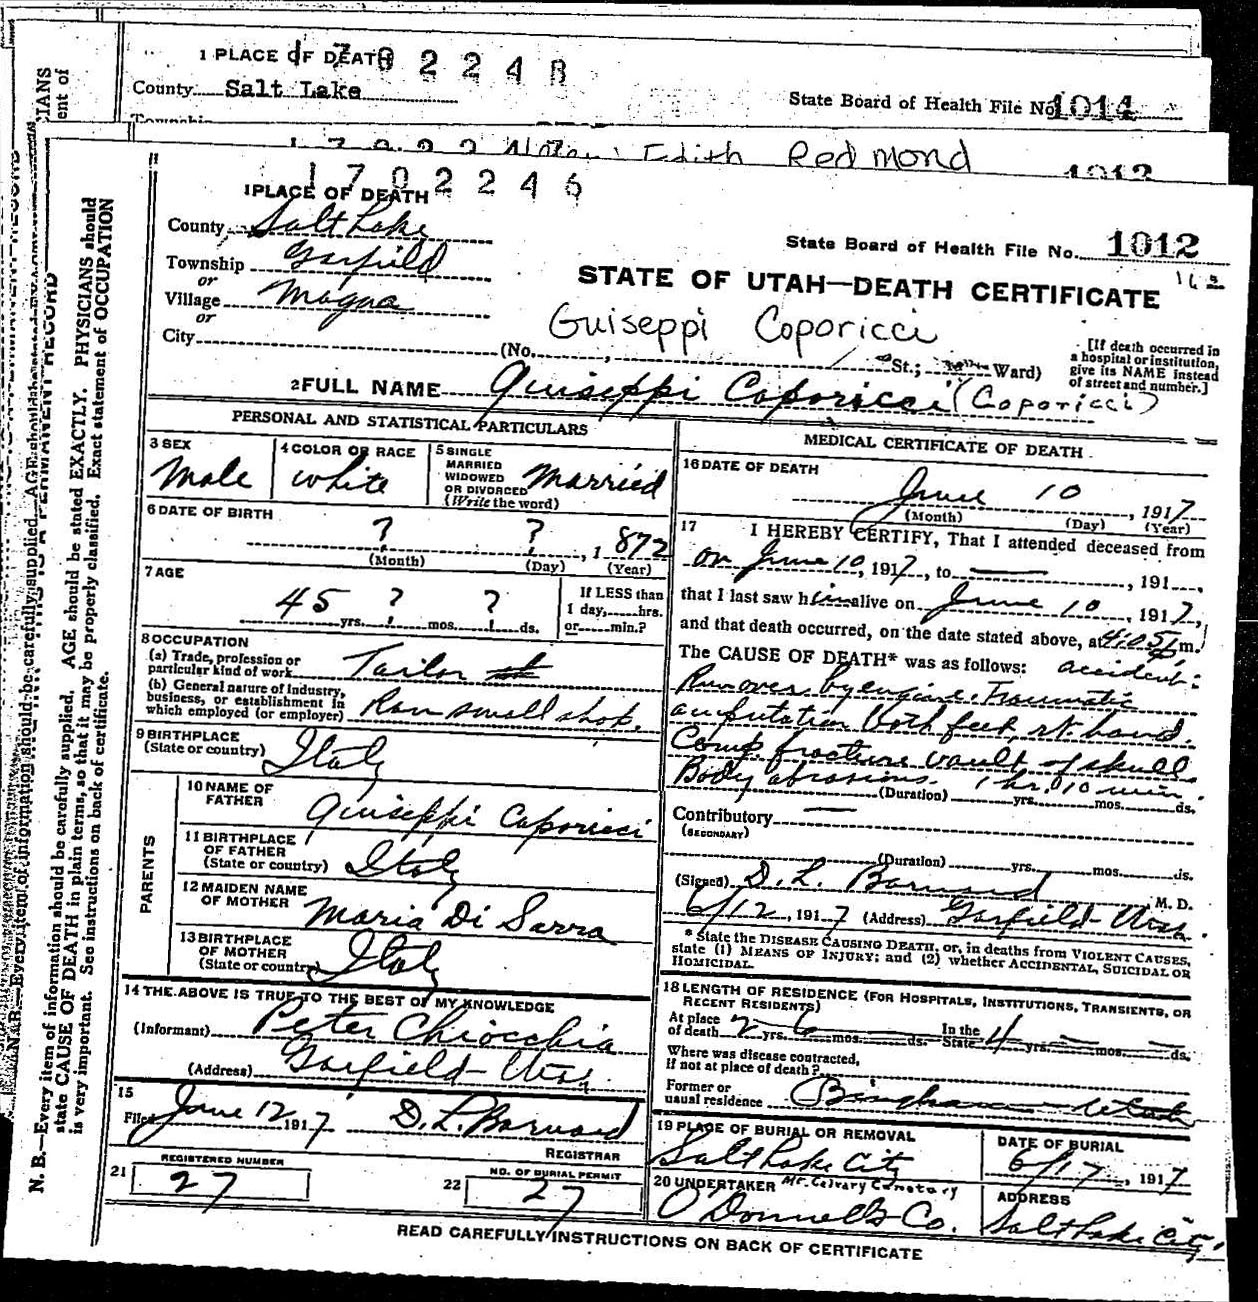 1 PLACE OF DEATH
1 7 0 2 2 4 8
County Salt Lake
State Board of Health File No. 1014
Township
Edith Redmond
1013
1 7 0 2 2 4 6
1 PLACE OF DEATH
County Salt Lake
State Board of Health File No. 1012
Township Garfield
or
STATE OF UTAH—DEATH CERTIFICATE
Village Magna
or
Guiseppi Coporicci
City
(No. , St.; Ward)
[If death occurred in
a hospital or institution,
give its NAME instead
of street and number.]
2 FULL NAME Guiseppi Coporicci (Coporicci)
PERSONAL AND STATISTICAL PARTICULARS
3 SEX
Male
4 COLOR OR RACE
white
5 SINGLE
MARRIED
WIDOWED
OR DIVORCED
(Write the word)
Married
6 DATE OF BIRTH
? ? , 1 872
(Month) (Day) (Year)
7 AGE
45 yrs. ? mos. ? ds.
If LESS than
1 day, hrs.
or min.?
8 OCCUPATION
(a) Trade, profession or
particular kind of work Tailor
(b) General nature of industry,
business, or establishment in
which employed (or employer) Ran small shop.
9 BIRTHPLACE
(State or country) Italy
PARENTS
10 NAME OF
FATHER Guiseppi Caporicci
11 BIRTHPLACE
OF FATHER
(State or country) Italy
12 MAIDEN NAME
OF MOTHER Maria Di Sarra
13 BIRTHPLACE
OF MOTHER
(State or country) Italy
14 THE ABOVE IS TRUE TO THE BEST OF MY KNOWLEDGE
(Informant) Peter Chiocchia
(Address) Garfield Utah
15
Filed June 12 1917 D. L. Barnard
REGISTRAR
21 REGISTERED NUMBER
27
22 NO. OF BURIAL PERMIT
27
MEDICAL CERTIFICATE OF DEATH
16 DATE OF DEATH
June 10 , 1917
(Month) (Day) (Year)
17 I HEREBY CERTIFY, That I attended deceased from
on June 10, 1917, to , 191 ,
that I last saw him alive on June 10 , 1917,
and that death occurred, on the date stated above, at 4:05 P m.
The CAUSE OF DEATH* was as follows: accident:
Run over by engine. Traumatic
amputation both feet, rt. hand.
Comp. fracture vault of skull.
Body abrasions. 1 hr. 10 min.
(Duration) yrs. mos. ds.
Contributory
(SECONDARY)
(Duration) yrs. mos. ds.
(Signed) D. L. Barnard M. D.
6/12, 1917 (Address) Garfield Utah.
* State the DISEASE CAUSING DEATH, or, in deaths from VIOLENT CAUSES,
state (1) MEANS OF INJURY; and (2) whether ACCIDENTAL, SUICIDAL OR
HOMICIDAL.
18 LENGTH OF RESIDENCE (FOR HOSPITALS, INSTITUTIONS, TRANSIENTS, OR
RECENT RESIDENTS)
At place
of death 2 yrs. 6 mos. ds. In the
State 4 yrs. mos. ds.
Where was disease contracted,
if not at place of death?
Former or
usual residence Bingham Utah
19 PLACE OF BURIAL OR REMOVAL
Salt Lake City
DATE OF BURIAL
6/17, 1917
20 UNDERTAKER Mt. Calvary Cemetary
O'Donnell & Co.
ADDRESS
Salt Lake City
READ CAREFULLY INSTRUCTIONS ON BACK OF CERTIFICATE
N. B.—Every item of information should be carefully supplied. AGE should be stated EXACTLY. PHYSICIANS should
state CAUSE OF DEATH in plain terms, so that it may be properly classified. Exact statement of OCCUPATION
is very important. See instructions on back of certificate.